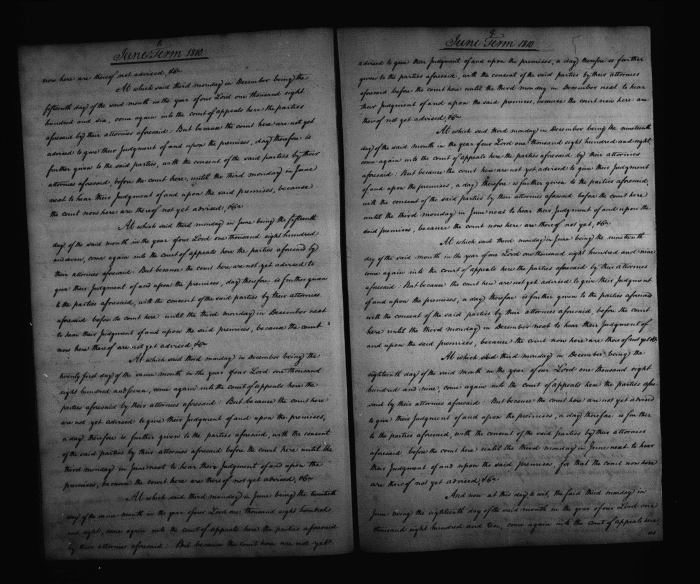 June Term 1810.
now here are thereof not advised, &c.
At which said third monday in December being the
fifteenth day of the said month in the year of our Lord one thousand eight
hundred and six, come again into the court of appeals here the parties
aforesaid by their attornies aforesaid. But because the court here are not yet
advised to give their Judgment of and upon the premises, day therefore is
further given to the said parties, with the consent of the said parties by their
attornies aforesaid, before the court here, until the third monday in June
next to hear their Judgment of and upon the said premises, because
the court now here are thereof not yet advised, &c.
At which said third monday in June being the fifteenth
day of the said month in the year of our Lord one thousand eight hundred
and seven, come again into the court of appeals here the parties aforesaid by
their attornies aforesaid. But because the court here are not yet advised to
give their Judgment of and upon the premises, day therefore is further given
to the parties aforesaid, with the consent of the said parties by their attornies
aforesaid before the court here until the third monday in December next
to hear their Judgment of and upon the said premises, because the court
now here thereof are not yet advised, &c.
At which said third monday in December being the
twenty first day of the same month in the year of our Lord one thousand
eight hundred and seven, come again into the court of appeals here the
parties aforesaid by their attornies aforesaid: But because the court here
are not yet advised to give their Judgment of and upon the premises,
a day therefore is further given to the parties aforesaid, with the consent
of the said parties by their attornies aforesaid before the court here until the
third monday in June next to hear their Judgment of and upon the
premises, because the court here are thereof not yet advised, &c.
At which said third monday in June being the twentieth
day of the same month in the year of our Lord one thousand eight hundred
and eight, come again into the court of appeals here the parties aforesaid
by their attornies aforesaid: But because the court here are not yet
June Term 1810.
advised to give their Judgment of and upon the premises, a day therefore is further
given to the parties aforesaid, with the consent of the said parties by their attornies
aforesaid before the court here until the third monday in December next to hear
their Judgment of and upon the said premises, because the court now here are
thereof not yet advised, &c.
At which said third monday in December being the nineteenth
day of the said month in the year of our Lord one thousand eight hundred and eight,
come again into the court of appeals here the parties aforesaid by their attornies
aforesaid: But because the court here are not yet advised to give their Judgment
of and upon the premises, a day therefore is further given to the parties aforesaid,
with the consent of the said parties by their attornies aforesaid before the court here
until the third monday in June next to hear their Judgment of and upon the
said premises, because the court now here are thereof not yet, &c.
At which said third monday in June being the nineteenth
day of the said month in the year of our Lord one thousand eight hundred and nine
come again into the court of appeals here the parties aforesaid by their attornies
aforesaid: But because the court here are not yet advised to give their Judgment
of and upon the premises, a day therefore is further given to the parties aforesaid
with the consent of the said parties by their attornies aforesaid, before the court
here until the third monday in December next to hear their Judgment of
and upon the said premises, because the court now here are thereof not yet &c.
At which said third monday in December being the
eighteenth day of the said month in the year of our Lord one thousand eight
hundred and nine, come again into the court of appeals here the parties afore
said by their attornies aforesaid: But because the court here are not yet advised
to give their Judgment of and upon the premises, a day therefore is further
to the parties aforesaid, with the consent of the said parties by their attornies
aforesaid, before the court here until the third monday in June next to hear
their Judgment of and upon the said premises, for that the court now here
are thereof not yet advised, &c.
And now at this day to wit, the said third monday in
June being the eighteenth day of the said month in the year of our Lord one
thousand eight hundred and ten, come again into the court of appeals here